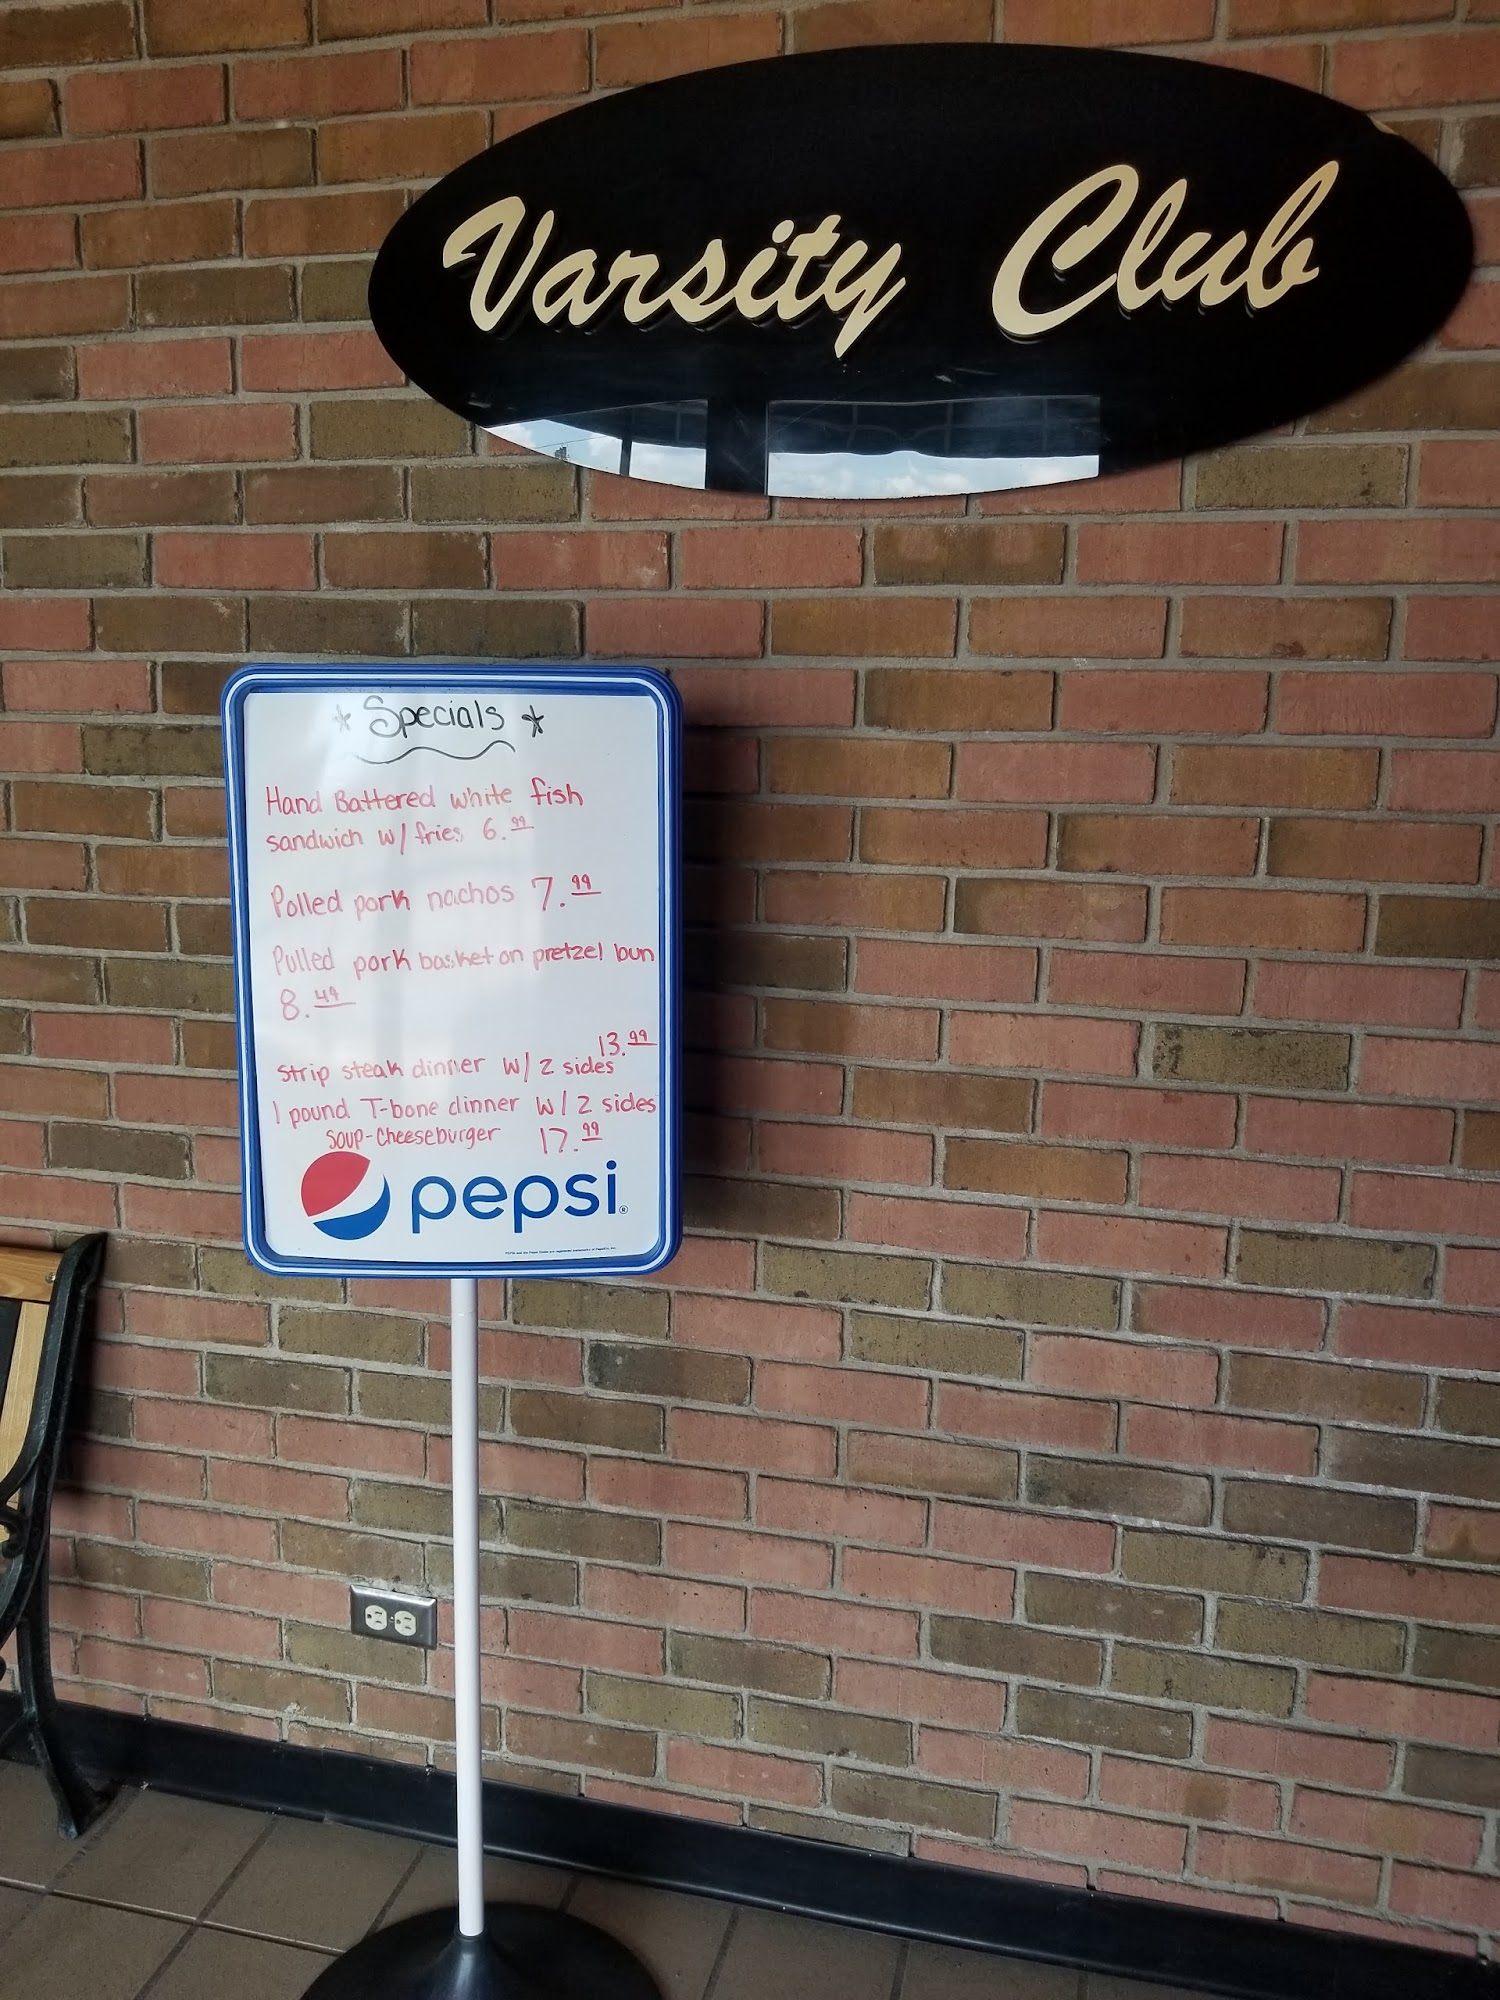 Varsity Club
* Specials *
Hand Battered white fish
sandwich w/ fries 6.99
Pulled pork nachos 7.99
Pulled pork basket on pretzel bun
8.49
13.99
strip steak dinner w/ 2 sides
1 pound T-bone dinner w/ 2 sides
Soup-Cheeseburger 17.99
pepsi®